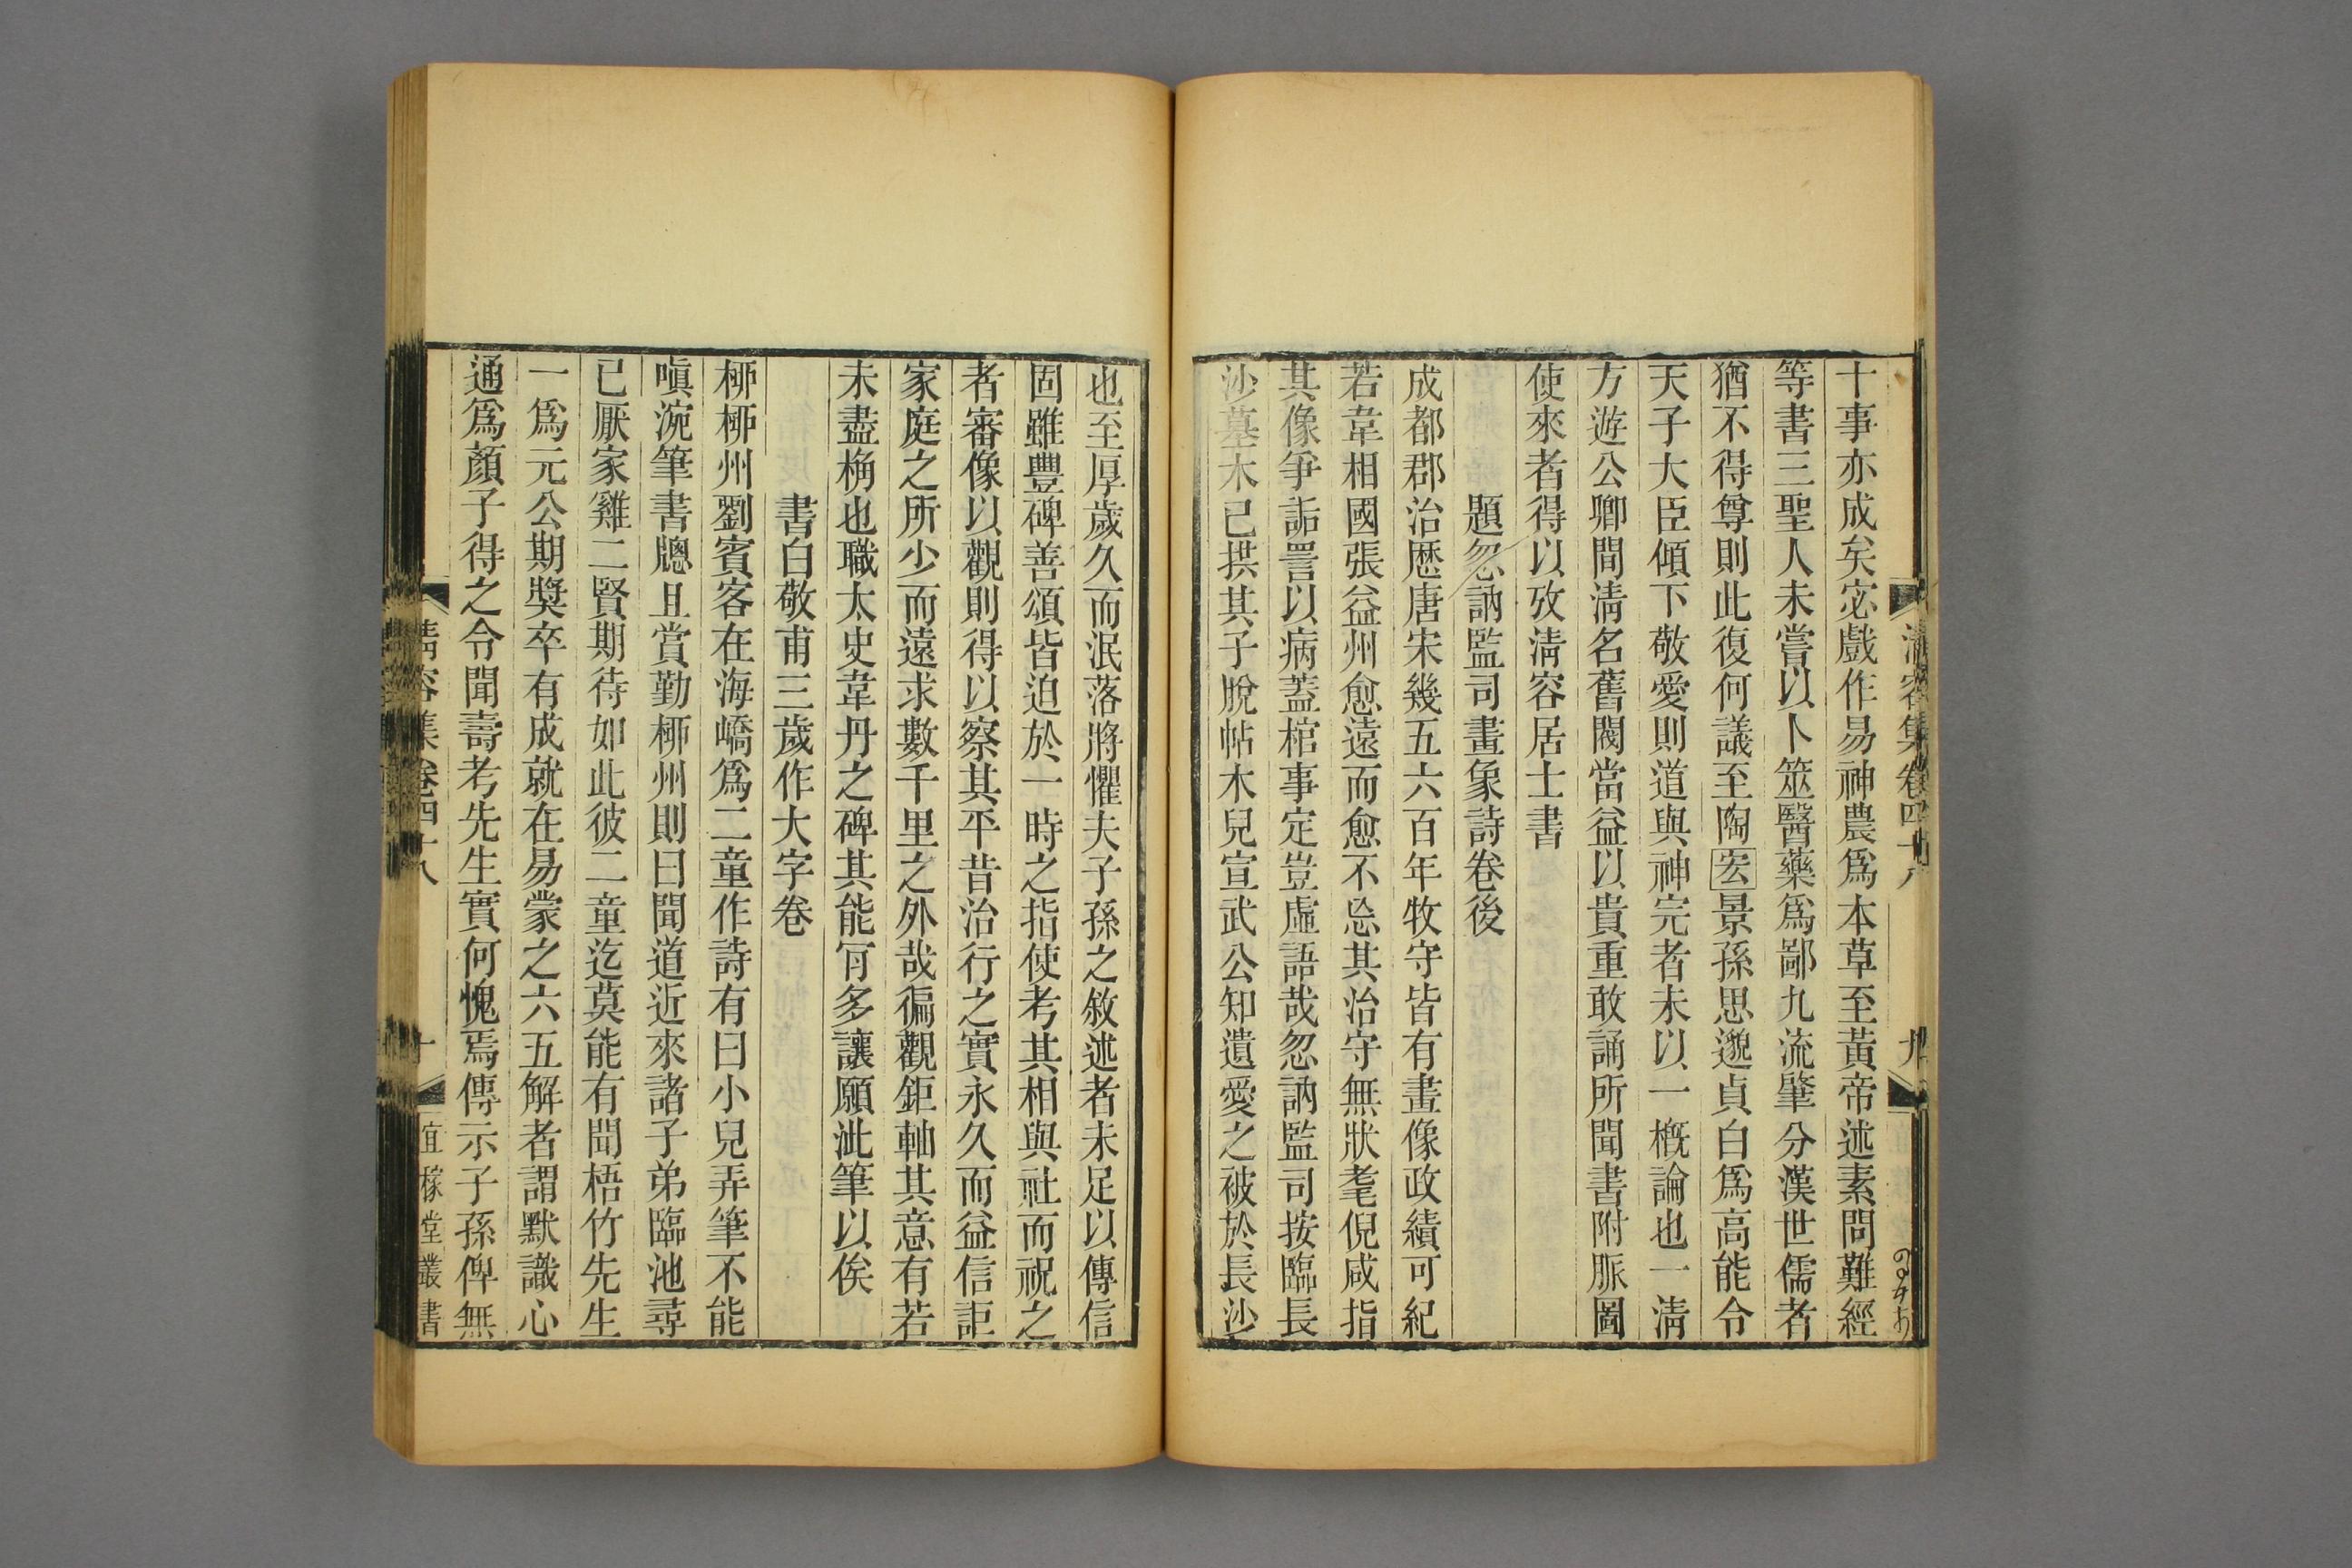 十事亦成矣宓戲作易神農爲本草至黃帝述素問難經
等書三聖人未嘗以卜筮醫藥爲鄙九流肇分漢世儒者
猶不得尊則此復何議至陶宏景孫思邈貞白爲高能令
天子大臣傾下敬愛則道與神完者未以一槪論也一淸
方遊公卿間淸名舊閥當益以貴重敢誦所聞書附脈圖
使來者得以攷淸容居士書
題忽訥監司畫象詩卷後
成都郡治歷唐宋幾五六百年牧守皆有畫像政績可紀
若韋相國張益州愈遠而愈不忘其治守無狀耄倪咸指
其像爭詬詈以病蓋棺事定豈虛語哉忽訥監司按臨長
沙墓木已拱其子脫帖木兒宣武公知遺愛之被於長沙
也至厚歲久而泯落將懼夫子孫之敘述者未足以傳信
固雖豐碑善頌皆迫於一時之指使考其相與社而祝之
者審像以觀則得以察其平昔治行之實永久而益信詎
家庭之所少而遠求數千里之外哉徧觀鉅軸其意有若
未盡桷也職太史韋丹之碑其能肎多讓願泚筆以俟
書白敬甫三歲作大字卷
栁栁州劉賓客在海嶠爲二童作詩有曰小兒弄筆不能
嗔涴筆書牕且賞勤栁州則曰聞道近來諸子弟臨池尋
已厭家雞二賢期待如此彼二童迄莫能有聞梧竹先生
一爲元公期獎卒有成就在易蒙之六五解者謂默識心
通爲顏子得之令聞壽考先生實何愧焉傳示子孫俾無
淸容集卷四十八
十
宜稼堂叢書